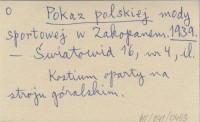 O
Pokaz polskiej mody
sportowej w Zakopanem. 1939.
— Światowid 16, nr 4, il.
Kostium oparty na
stroju góralskim.